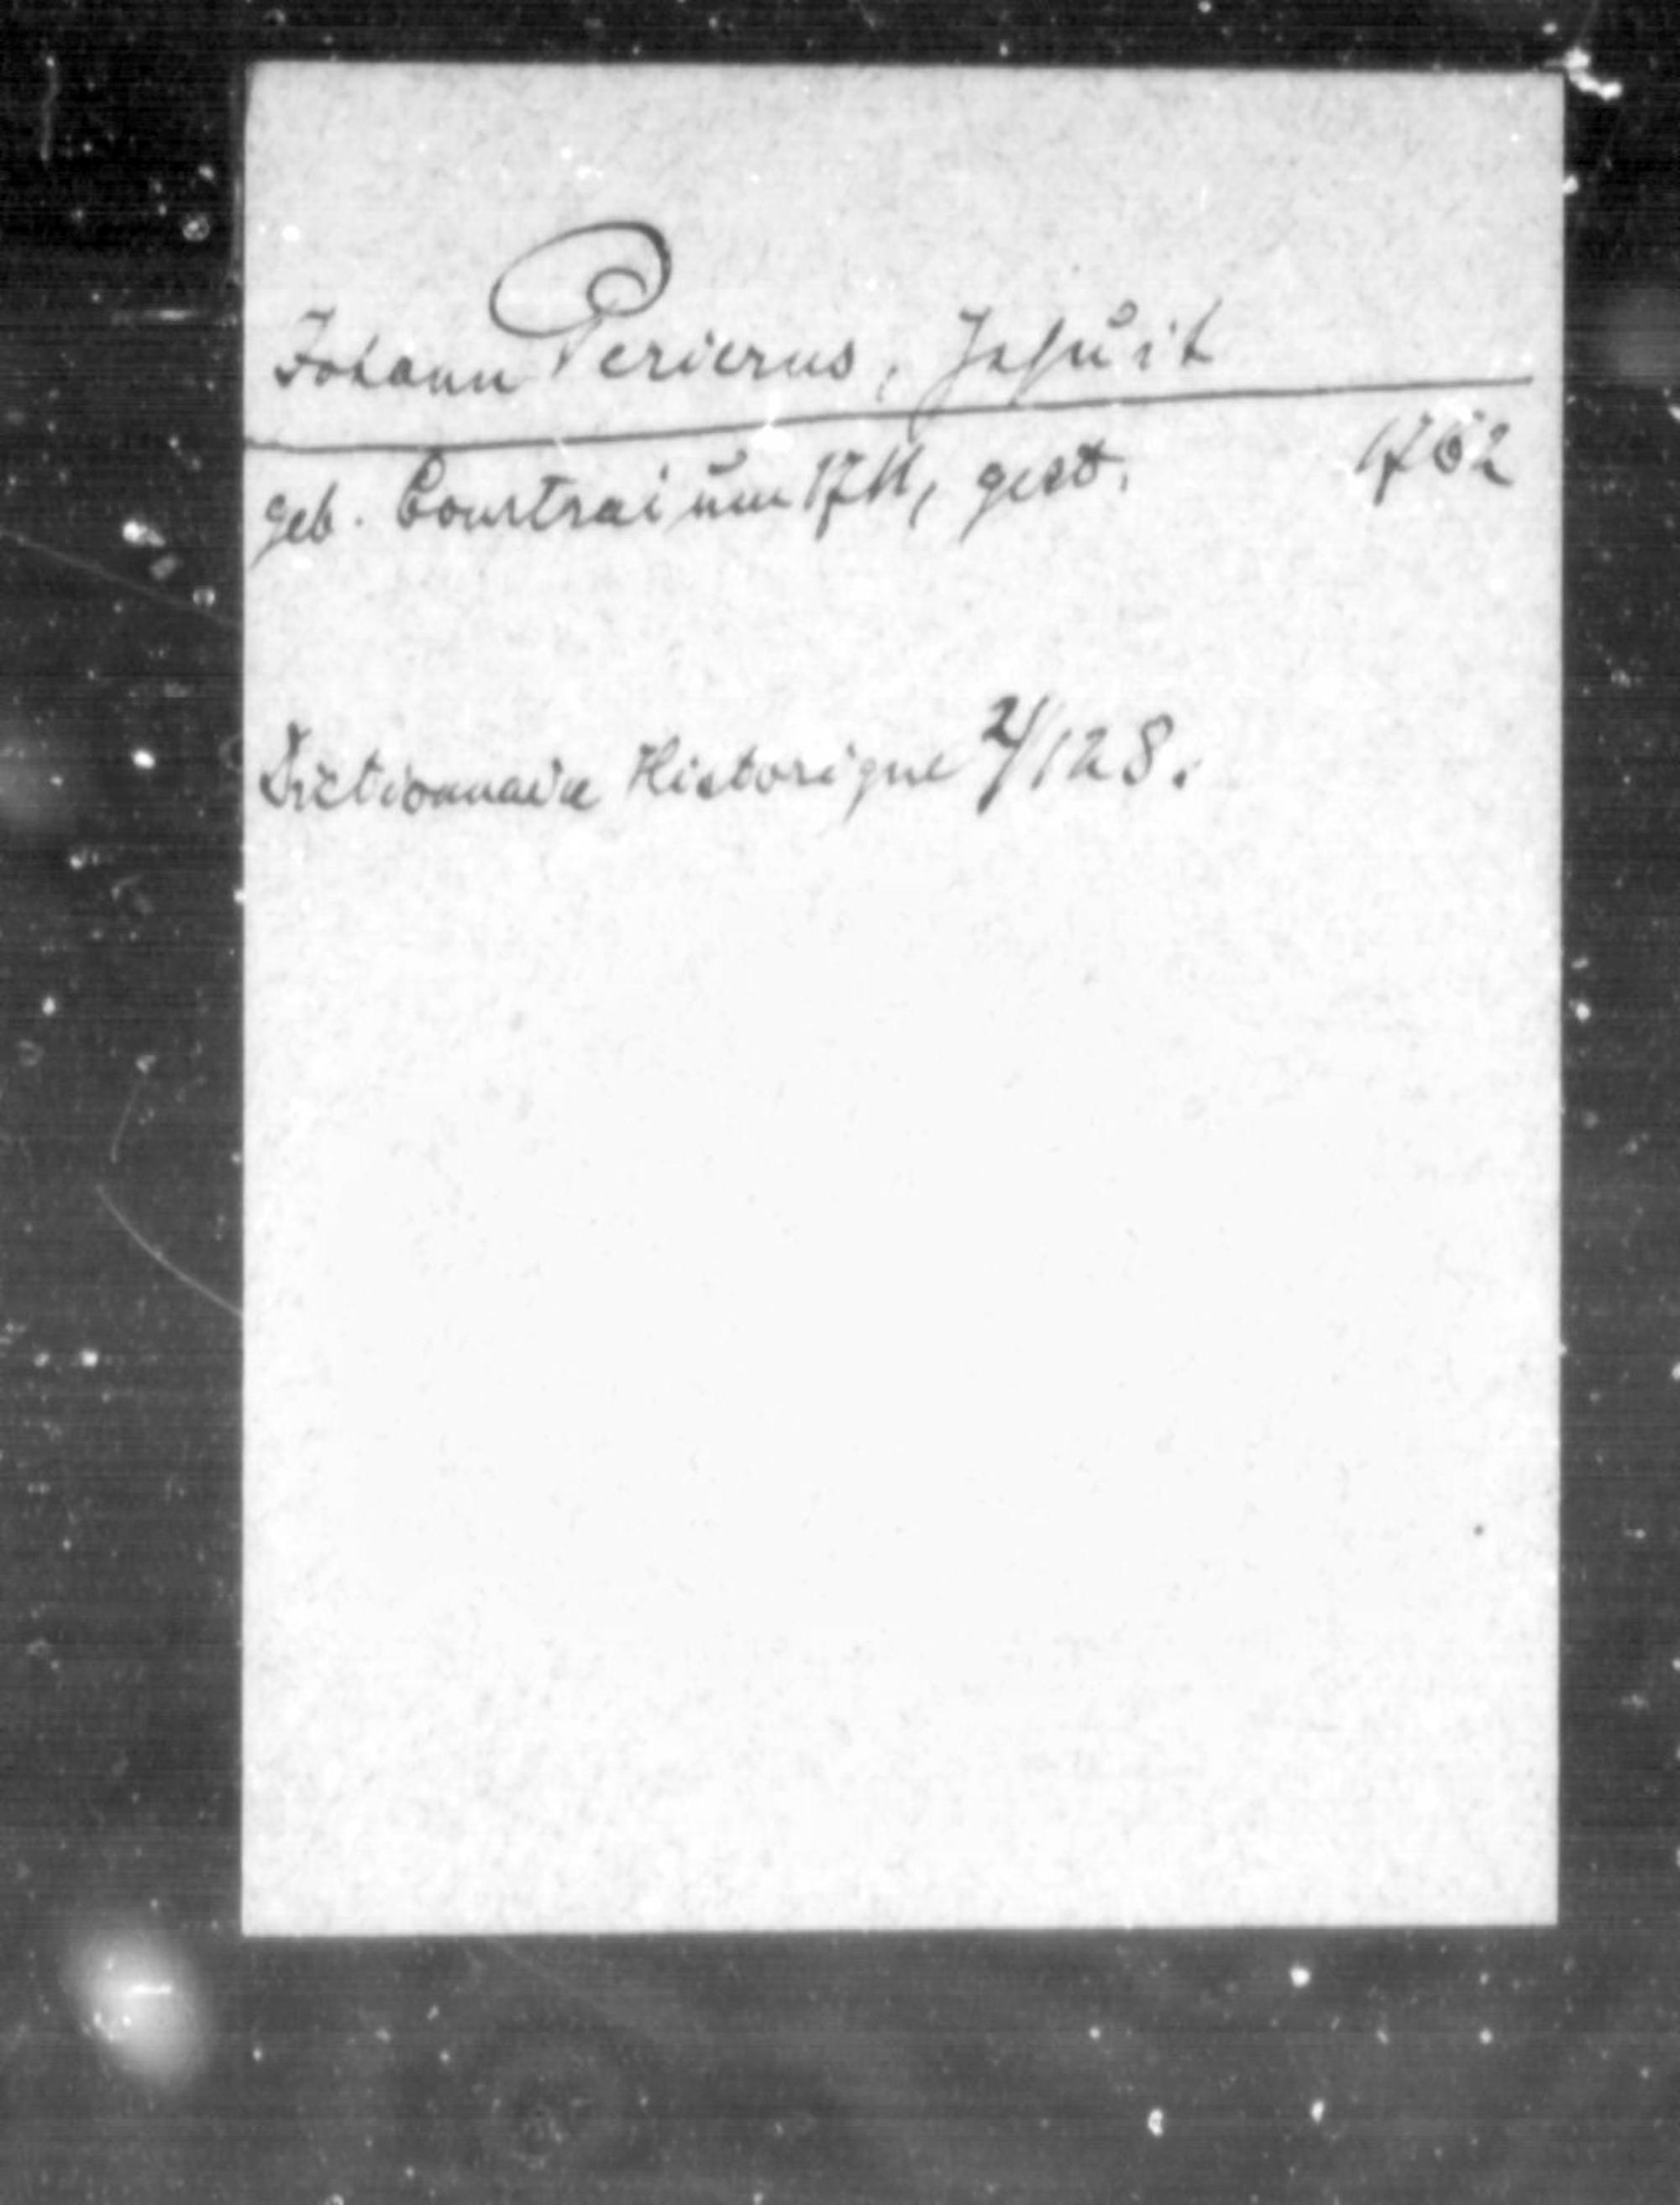 Johann Perierus, Jesuit
geb. Courtrai um 1711, gest. 1762
Dictionnaire Historique 2/128.